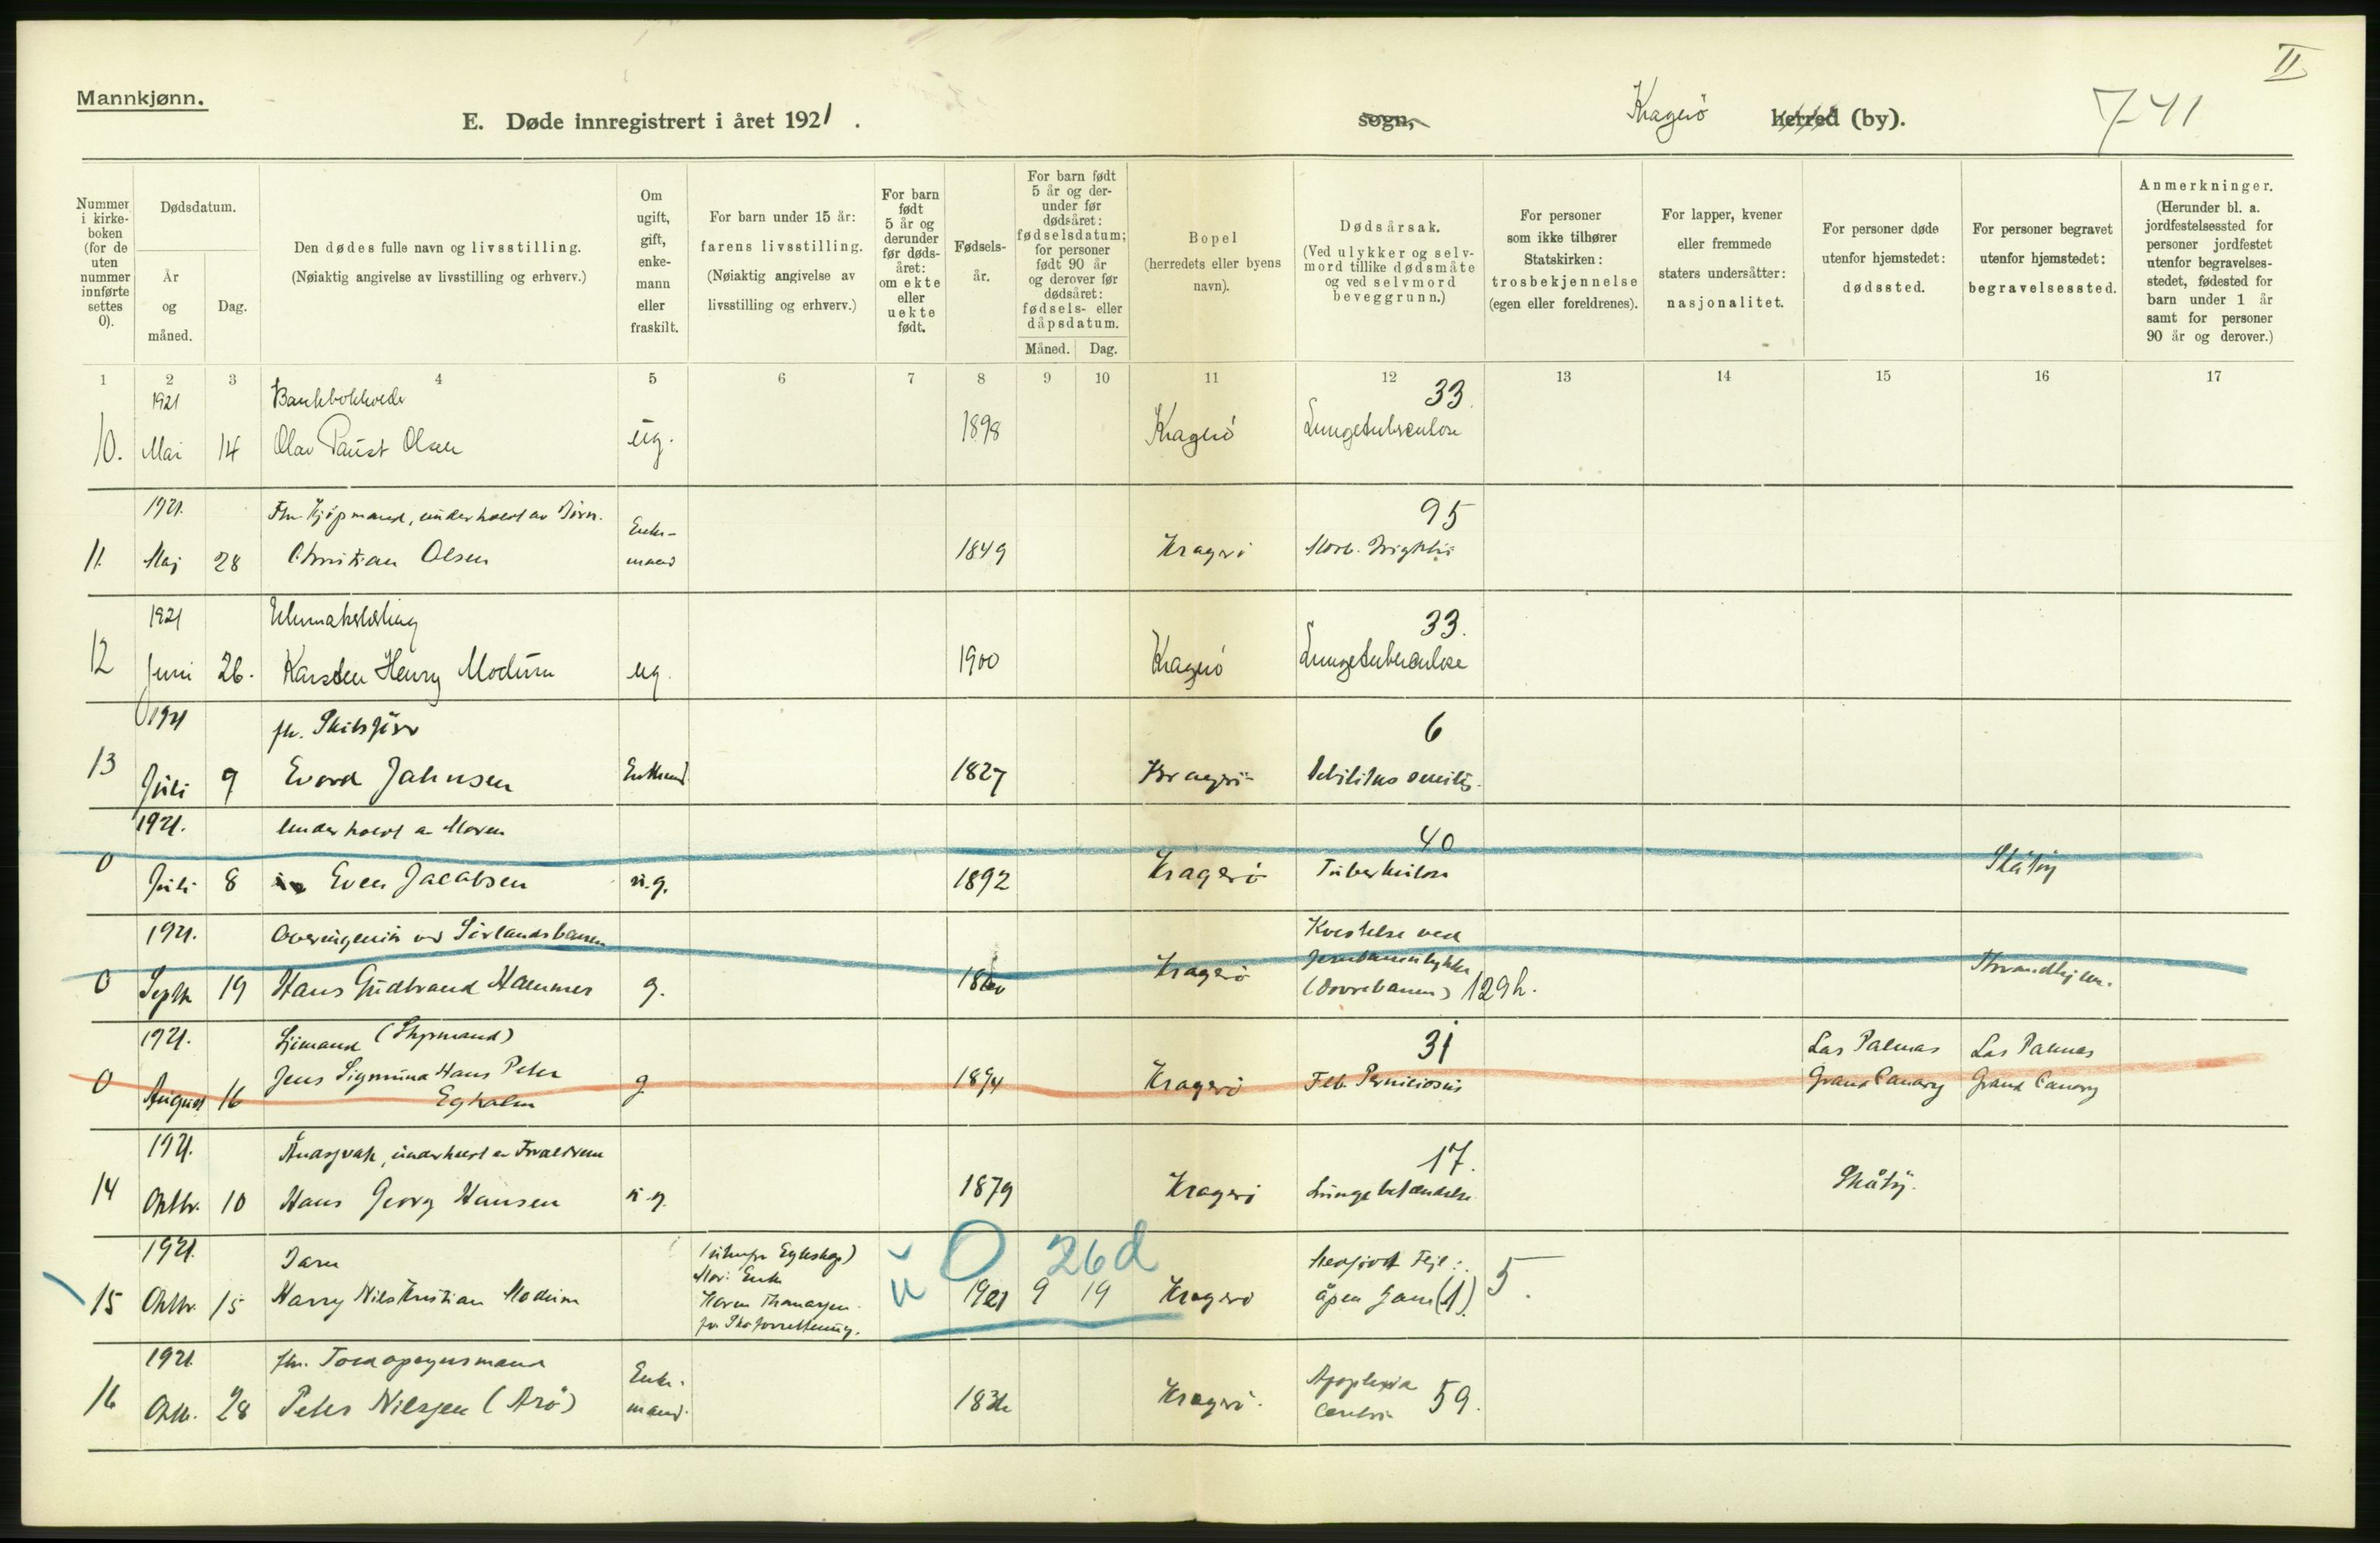 II
Mannkjønn.
E. Døde innregistrert i året 1921.
sogn,
Kragerö
herred (by).
741
Nummer i kirkeboken (for de uten nummer innførte settes 0).
Dødsdatum.
År og måned.
Dag.
Den dødes fulle navn og livsstilling.
(Nøiaktig angivelse av livsstilling og erhverv.)
Om ugift, gift, enkemann eller fraskilt.
For barn under 15 år:
farens livsstilling.
(Nøiaktig angivelse av livsstilling og erhverv.)
For barn født 5 år og derunder før dødsåret: om ekte eller uekte født.
Fødselsår.
For barn født 5 år og derunder før dødsåret: fødselsdatum; for personer født 90 år og derover før dødsåret: fødsels- eller dåpsdatum.
Måned.
Dag.
Bopel
(herredets eller byens navn).
Dødsårsak.
(Ved ulykker og selvmord tillike dødsmåte og ved selvmord beveggrunn.)
For personer som ikke tilhører Statskirken:
trosbekjennelse
(egen eller foreldrenes).
For lapper, kvener eller fremmede staters undersåtter:
nasjonalitet.
For personer døde utenfor hjemstedet:
dødssted.
For personer begravet utenfor hjemstedet:
begravelsessted.
Anmerkninger.
(Herunder bl. a. jordfestelsessted for personer jordfestet utenfor begravelsesstedet, fødested for barn under 1 år samt for personer 90 år og derover.)
1 2 3 4 5 6 7 8 9 10 11 12 13 14 15 16 17
1921 33.
10. Mai 14 Olav Faust Olsen ug. 1898 Kragerö Lungetuberculose
1921. Fhv. Kjøpmand, underholdt av Børn. Enke- 95
11. Maj 28 Christian Olsen mand 1849 Kragerö Morb. Brightii
1921 Uhrmakerlærling 33.
12 Juni 26. Karsten Henry Modum ug. 1900 Kragerö Lungetuberculose
1921 fh. 6
13 Juli 9 Evord Jahnsen Enkemd 1827 Kragerö Debilitas senilis.
1921. Underholdt av Moren 40
0 Juli 8 Even Jacobsen u.g. 1892 Kragerö Tuberkulose Skåtöy
1921. Overingeniör ved Sörlandsbanen Kvestelse ved
0 Septbr 19 Hans Gudbrand Hammer g. Kragerö Jernbaneulykke Throndhjem.
(Dovrebanen) 129h.
1921. Sjömand (Styrmand) 31 Las Palmas Las Palmas
0 August 16 Jens Sigmund Hans Peter g 1894 Kragerö Feb. Perniciosus Grand Canary Grand Canary
Egholm
1921. Åndssvak, underholdt av Forældrene 17.
14 Oktbr. 10 Hans Georg Hansen u.g. 1879 Kragerö Lungebetændelse. Skåtöy.
1921. Barn (utenfor Egteskap) 0 26d Medfödt Fejl: 5.
15 Oktbr. 15 Harry Nils Kristian Modum Mor: Enke u 1921 9 19 Kragerö åpen Gane (1).
Karen Thomassen
1921. fhv. Enke-
16 Oktb. 28 Peter Nilssen (Arö) mand. Kragerö. Apoplexia 59.
Cerebri